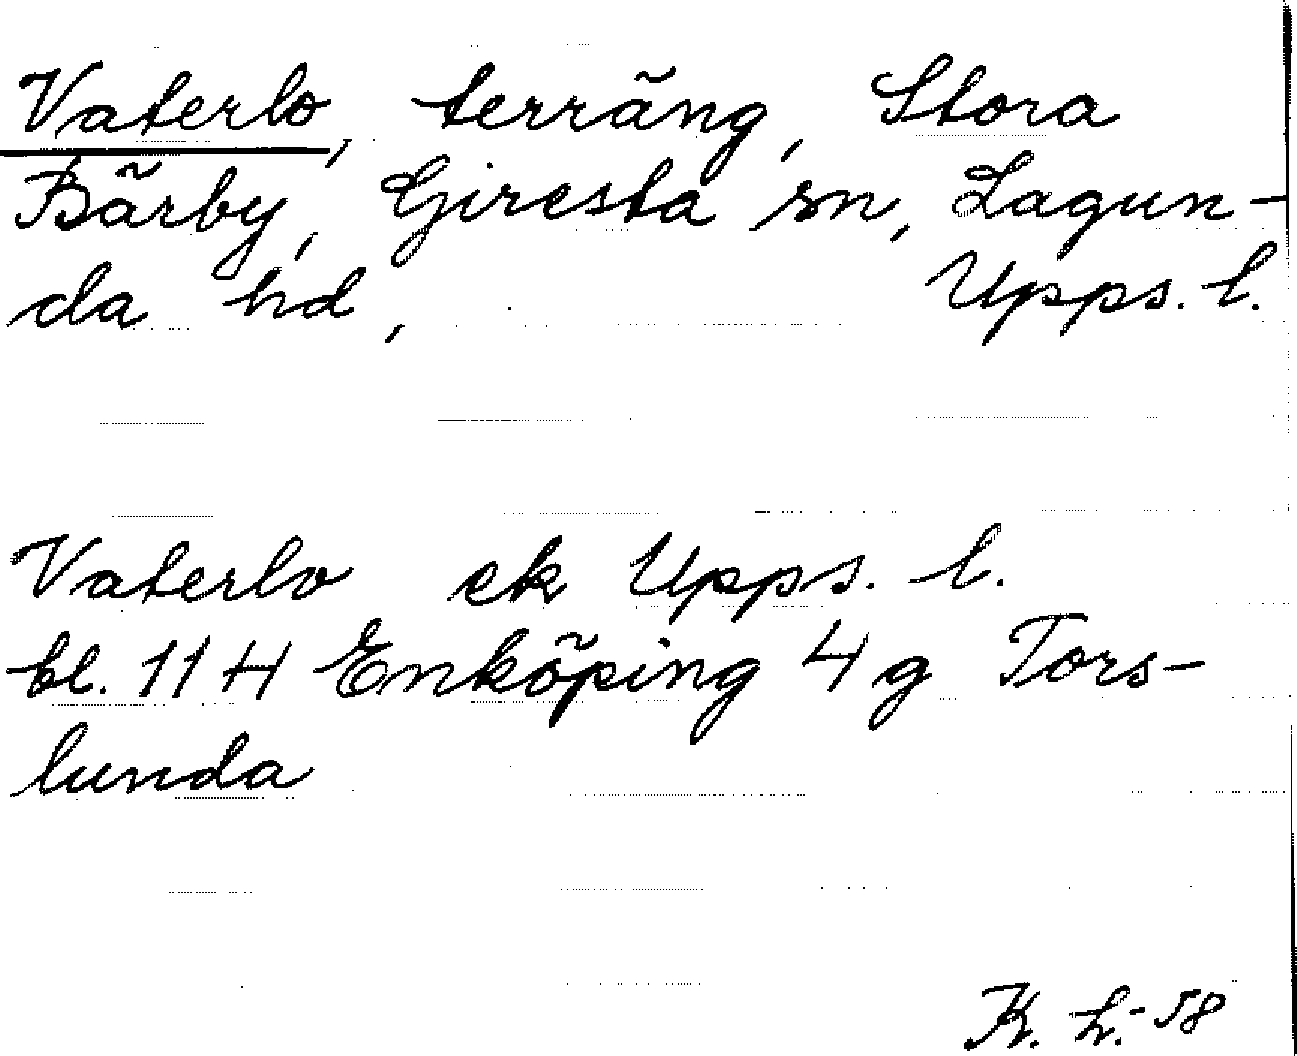 Vaterlo, terräng, Stora
Bärby, Giresta sn, Lagun-
da hd, Upps. l.
Vaterlo ek Upps. l.
bl. 11 H Enköping 4 g Tors-
lunda
K. L. -58